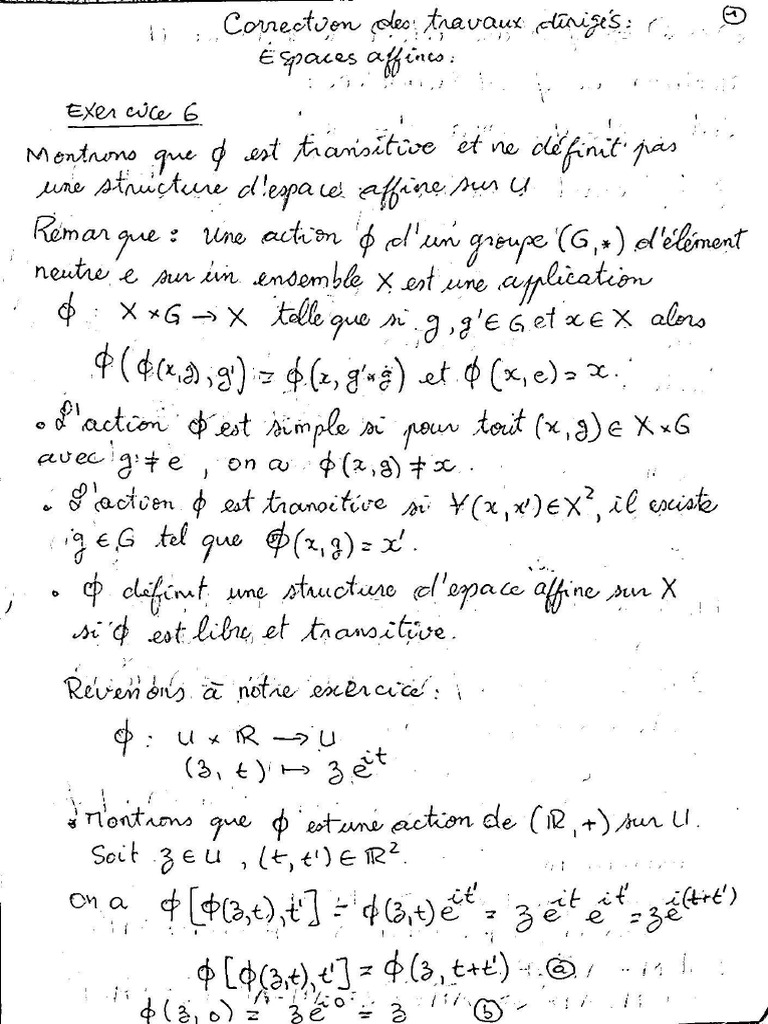 Correction des travaux dirigés: ①
Espaces affines.
Exercice 6
Montrons que ϕ est transitive et ne définit pas
une structure d'espace affine sur U
Remarque: Une action ϕ d'un groupe (G,*) d'élément
neutre e sur un ensemble X est une application
ϕ : X×G → X telle que si g, g'∈G et x∈X alors
ϕ(ϕ(x,g), g') = ϕ(x, g'*g) et ϕ(x,e) = x.
• L'action ϕ est simple si pour tout (x,g) ∈ X×G
avec g ≠ e, on a ϕ(x,g) ≠ x.
• L'action ϕ est transitive si ∀(x,x')∈X², il existe
g ∈ G tel que ϕ(x,g) = x'.
• ϕ définit une structure d'espace affine sur X
si ϕ est libre et transitive.
Revenons à notre exercice:
ϕ : U × ℝ → U
(z, t) ↦ z e^{it}
• Montrons que ϕ est une action de (ℝ,+) sur U.
Soit z ∈ U, (t,t') ∈ ℝ².
on a ϕ[ϕ(z,t),t'] = ϕ(z,t)e^{it'} = z e^{it} e^{it'} = z e^{i(t+t')}
ϕ[ϕ(z,t),t'] = ϕ(z, t+t') ⓐ
ϕ(z, 0) = z e^{i0} = z ⓑ